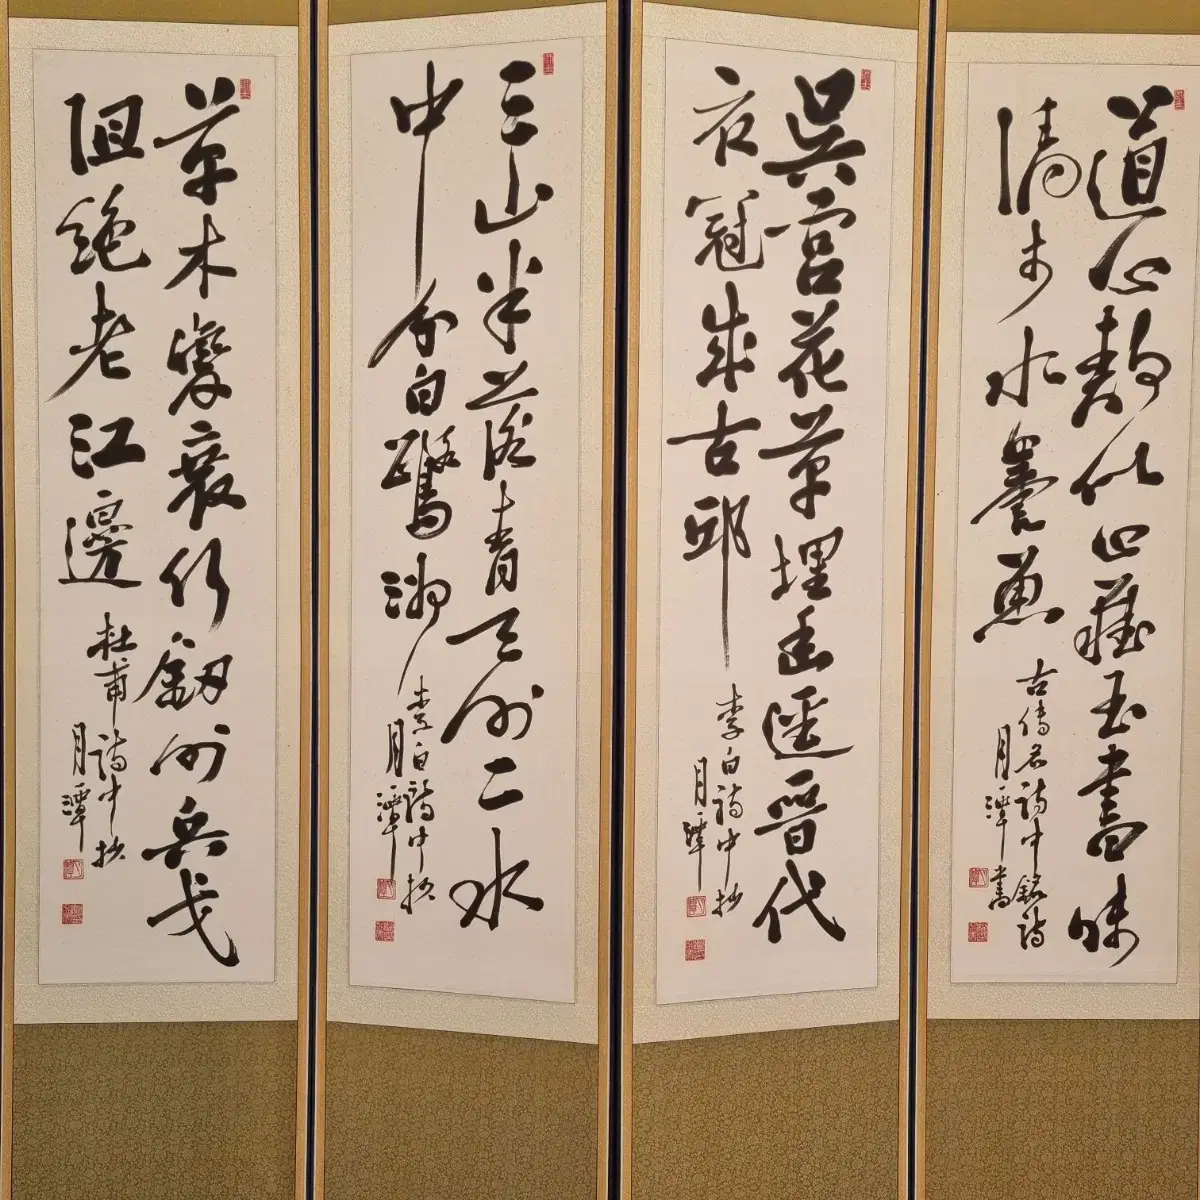 道心靜似山藏玉書味
清於水養魚
古傳名詩中錄詩
月潭書
吳宮花草埋幽逕晉代
衣冠成古邱
李白詩中抄
月潭
三山半落青天外二水
中分白鷺洲
李白詩中抄
月潭
草木變衰行劒外兵戈
阻絶老江邊
杜甫詩中抄
月潭